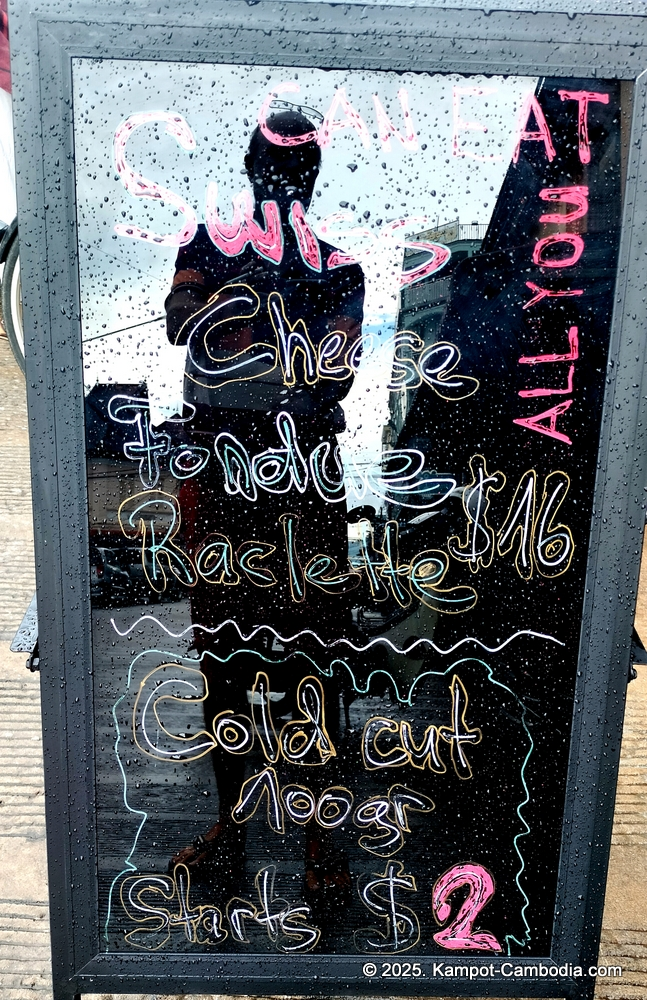 ALL YOU
CAN EAT
Swiss
Cheese
Fondue
Raclette $16
Cold cut
100gr
Starts $2
© 2025. Kampot-Cambodia.com